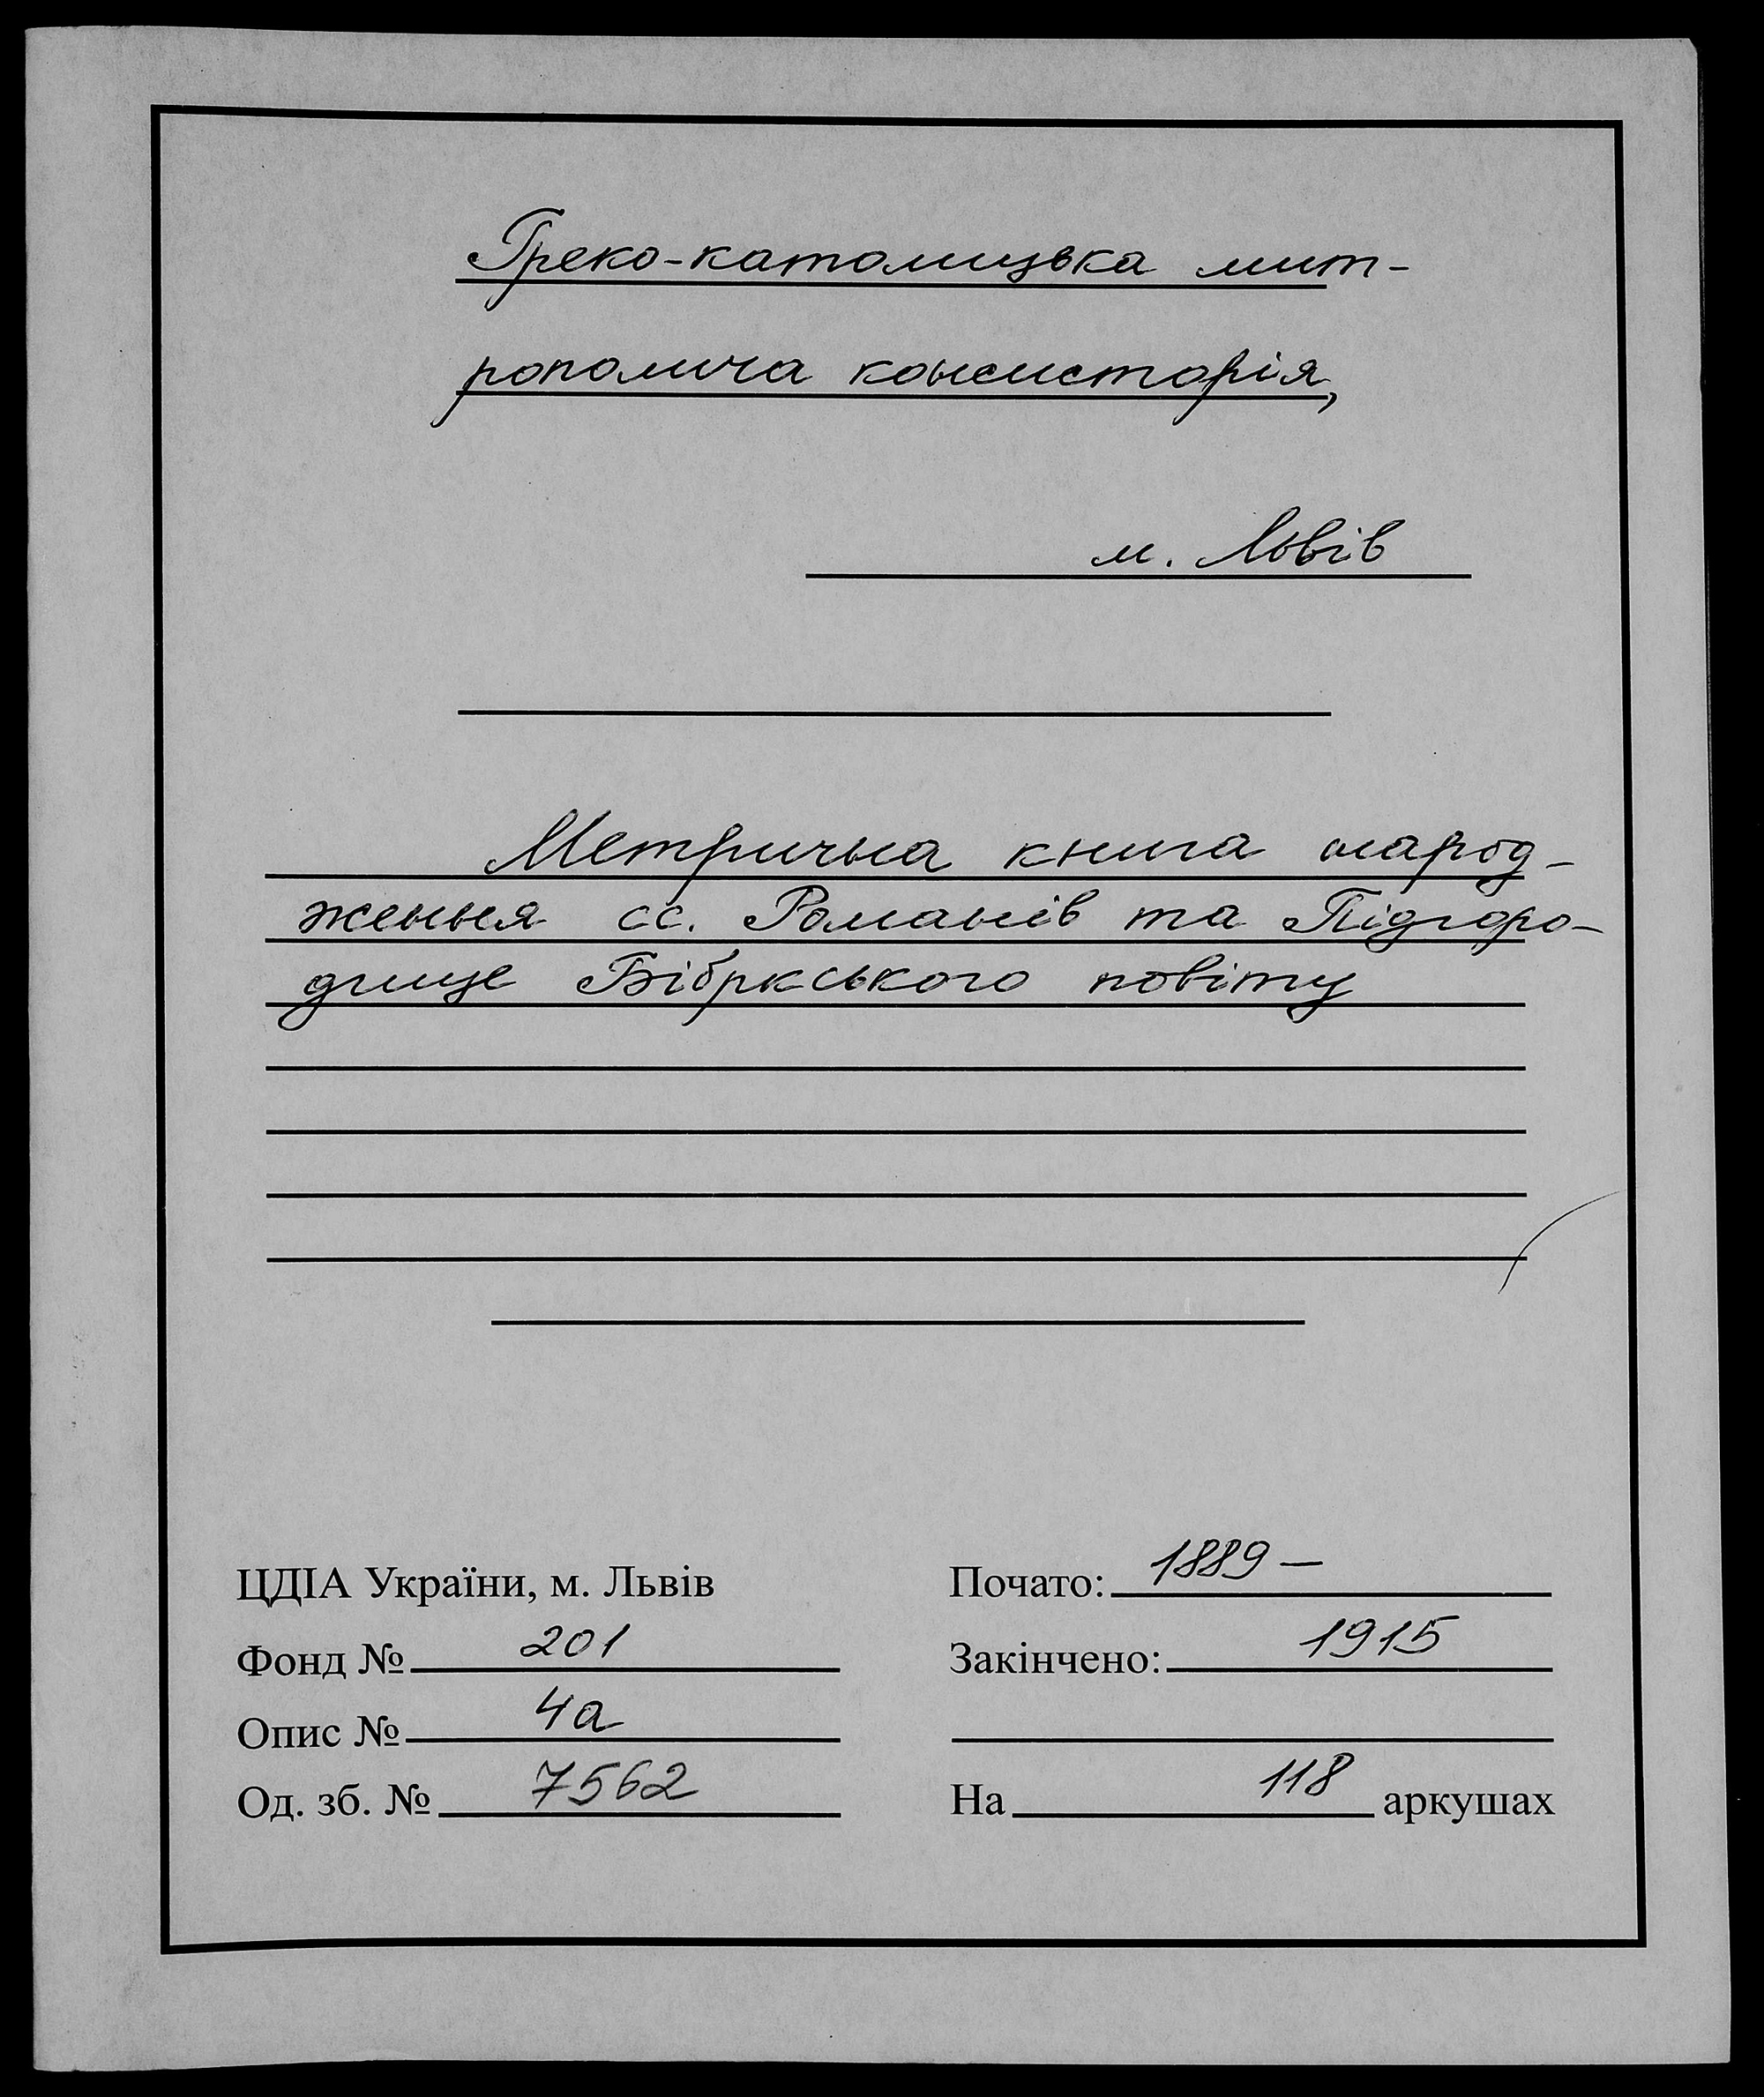 Греко-католицька мит-
рополича консисторія,
м. Львів
Метрична книга народ-
ження сс. Романів та Підгоро-
дище Бібркського повіту
ЦДІА України, м. Львів
Фонд № 201
Опис № 4а
Од. зб. № 7562
Почато: 1889 –
Закінчено: 1915
На 118 аркушах